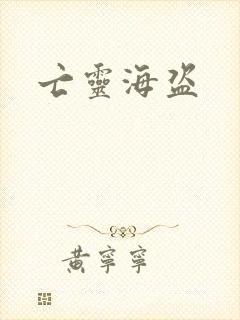 亡靈海盜
黃寧寧